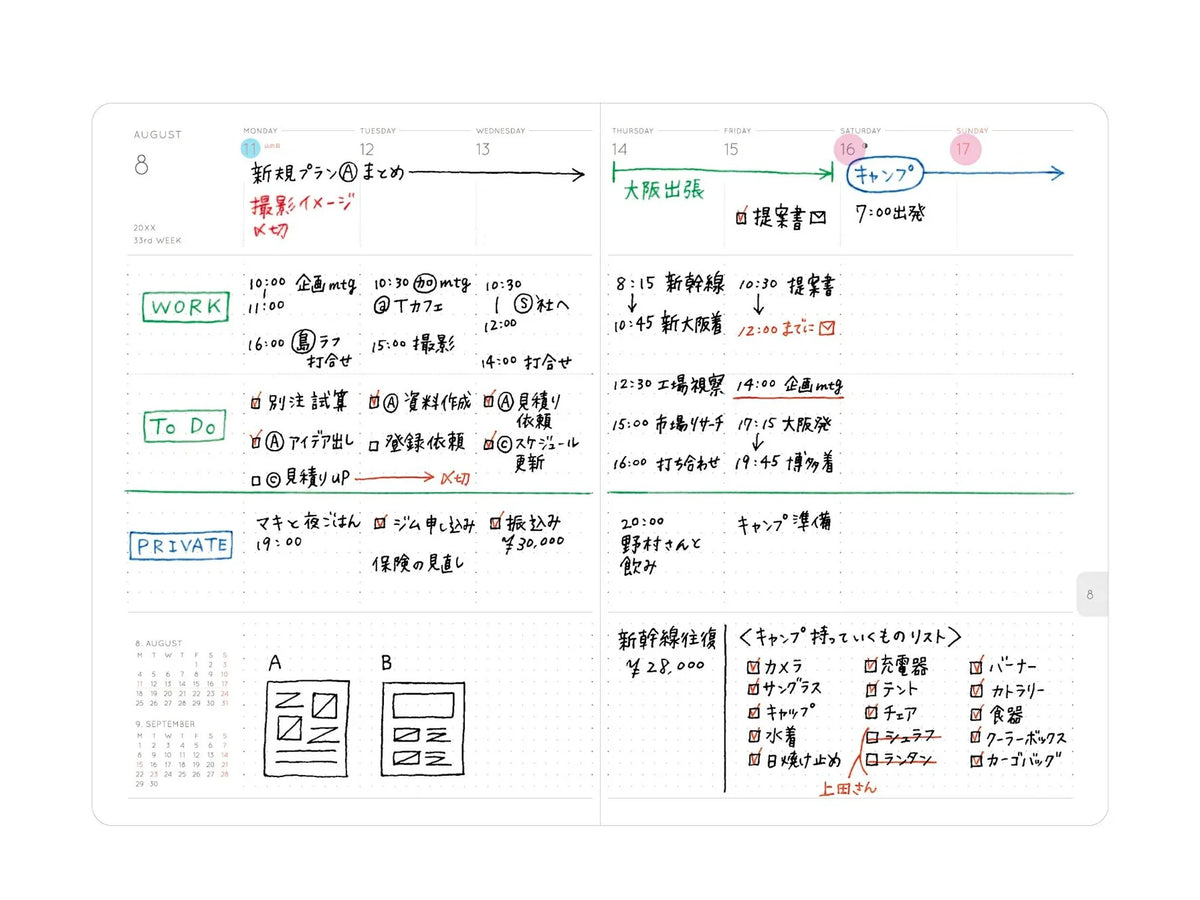 AUGUST
8
20XX
33rd WEEK
MONDAY
11 山の日
TUESDAY
12
WEDNESDAY
13
新規プランⒶまとめ
撮影イメージ
〆切
WORK
10:00 企画mtg
11:00
16:00 島 ラフ
打合せ
10:30 加 mtg
@Tカフェ
15:00 撮影
10:30
Ⓢ社へ
12:00
14:00 打合せ
To Do
別注試算
Ⓐアイデア出し
Ⓒ見積りUP
〆切
Ⓐ資料作成
登録依頼
Ⓐ見積り
依頼
Ⓒスケジュール
更新
PRIVATE
マキと夜ごはん
19:00
ジム申し込み
保険の見直し
振込み
¥30,000
8. AUGUST
M T W T F S S
1 2 3
4 5 6 7 8 9 10
11 12 13 14 15 16 17
18 19 20 21 22 23 24
25 26 27 28 29 30 31
9. SEPTEMBER
M T W T F S S
1 2 3 4 5 6 7
8 9 10 11 12 13 14
15 16 17 18 19 20 21
22 23 24 25 26 27 28
29 30
A
B
THURSDAY
14
FRIDAY
15
SATURDAY
16
SUNDAY
17
大阪出張
提案書
キャンプ
7:00出発
8:15 新幹線
10:45 新大阪着
12:30 工場視察
15:00 市場リサーチ
16:00 打ち合わせ
10:30 提案書
12:00までに
14:00 企画mtg
17:15 大阪発
19:45 博多着
20:00
野村さんと
飲み
キャンプ準備
8
新幹線往復
¥28,000
〈キャンプ持っていくものリスト〉
カメラ
サングラス
キャップ
水着
日焼け止め
充電器
テント
チェア
シュラフ
ランタン
上田さん
バーナー
カトラリー
食器
クーラーボックス
カーゴバッグ